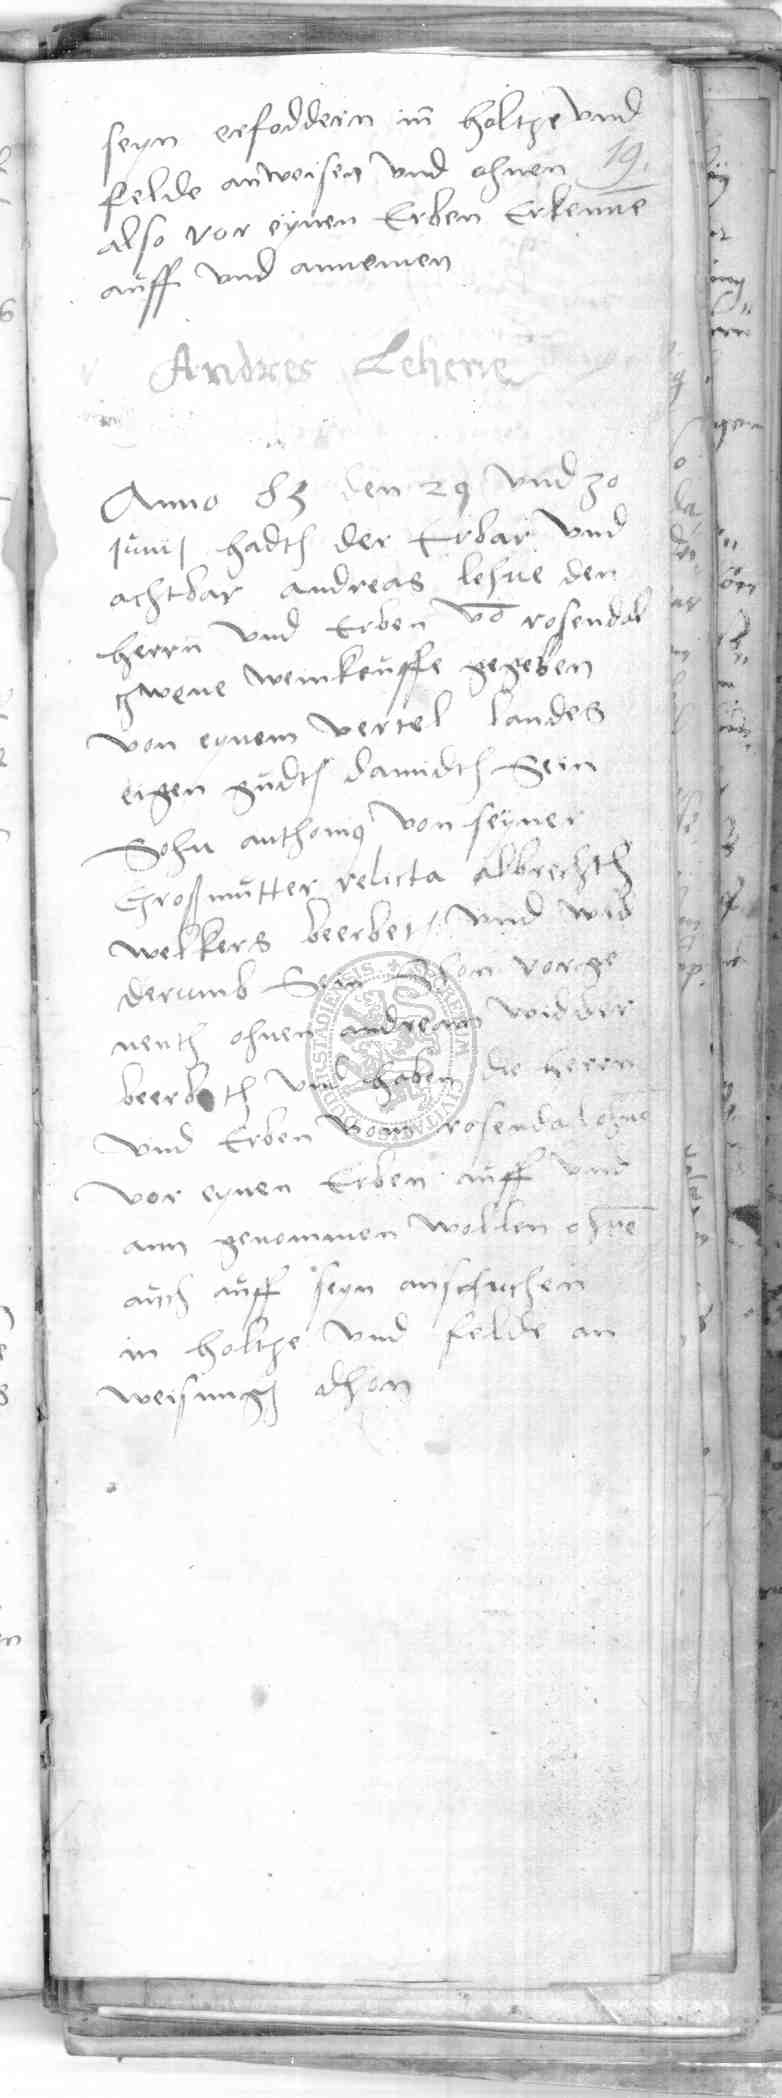 seyn erfodderin in holtze vnd
19.
felde anweisen vnd ohnen
also vor eynen Erben Erkenne
auff vnd annemen
Andres Lehene
Anno 83 den 29 vnd 30
Junij hadth der Erbar vnd
achtbar andreas lehne den
herrn vnd Erben vo rosendal
zwene weinkeuffe gegeben
von eynem vertel landes
eigen gudth damidth Sein
Sohn anthonius von seyner
Grosmutter relicta albrechth
welkers beerbet, vnd wid
derumb Sein Shon vorge
nenth ohnen andream widder
beerbeth vnd haben die herrn
vnd Erben vom rosendal ohne
vor eynen Erben auff vnd
ann genommen wollen ohne
auch auff seyn ansuchen
in holtze vnd felde an
weisung dhon